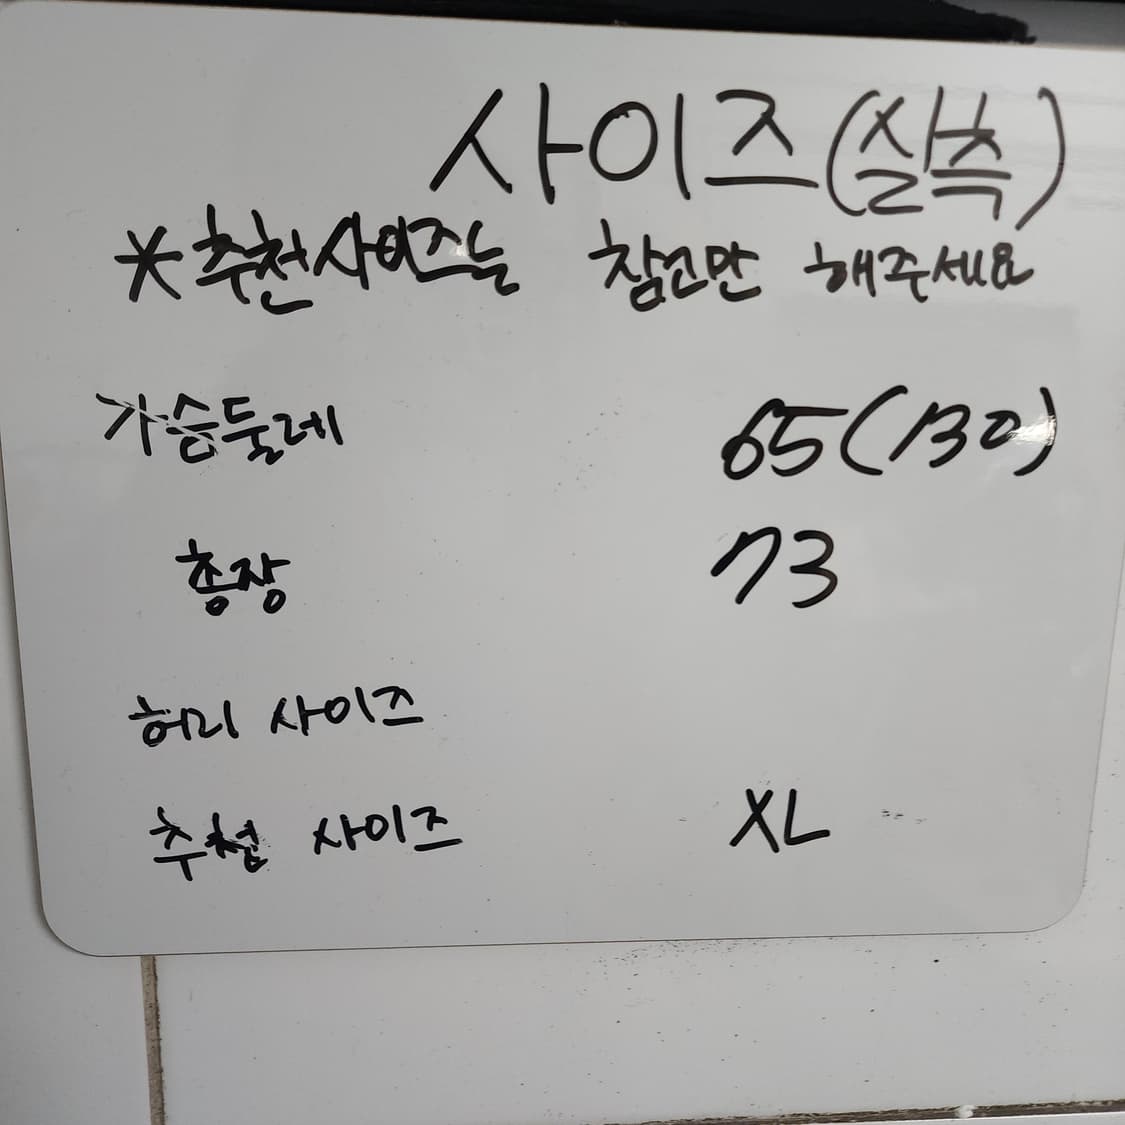 사이즈(실측)
*추천사이즈는 참고만 해주세요
가슴둘레 65(130)
총장 73
허리 사이즈
추천 사이즈 XL